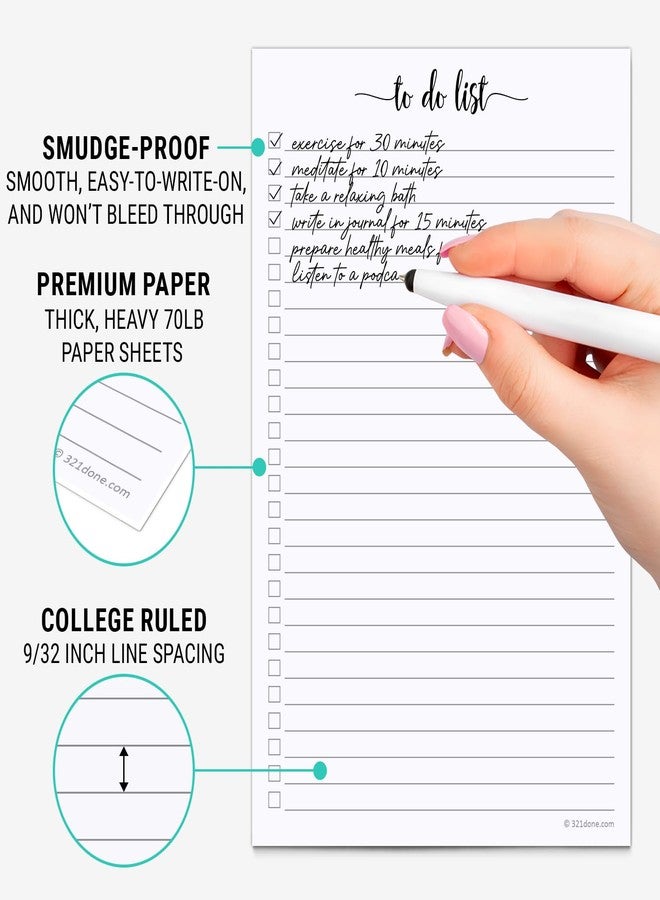 to do list
SMUDGE-PROOF
SMOOTH, EASY-TO-WRITE-ON,
AND WON'T BLEED THROUGH
exercise for 30 minutes
meditate for 10 minutes
take a relaxing bath
write in journal for 15 minutes
prepare healthy meals f
listen to a podca
PREMIUM PAPER
THICK, HEAVY 70LB
PAPER SHEETS
© 321done.com
COLLEGE RULED
9/32 INCH LINE SPACING
© 321done.com